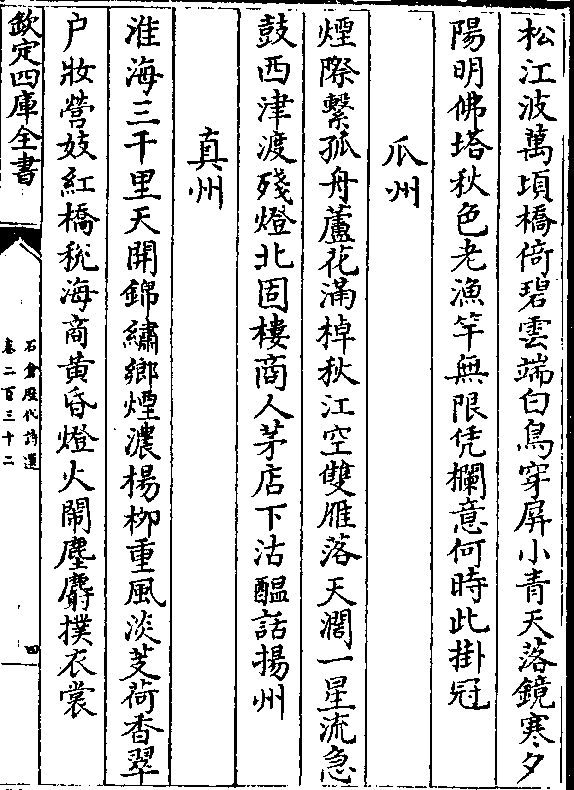 松江波萬頃橋倚碧雲端白鳥穿屏小青天落鏡寒夕
陽明佛塔秋色老漁竿無限凭欄意何時此掛冠
瓜州
煙際繫孤舟蘆花滿棹秋江空雙雁落天濶一星流急
鼓西津渡殘燈北固樓商人茅店下沽醖話揚州
真州
淮海三千里天開錦繡鄉煙濃楊柳重風淡芰荷香翠
户妝營妓紅橋稅海商黄昏燈火鬧塵麝撲衣裳
欽定四庫全書
石倉歷代詩選
卷二百三十二
四